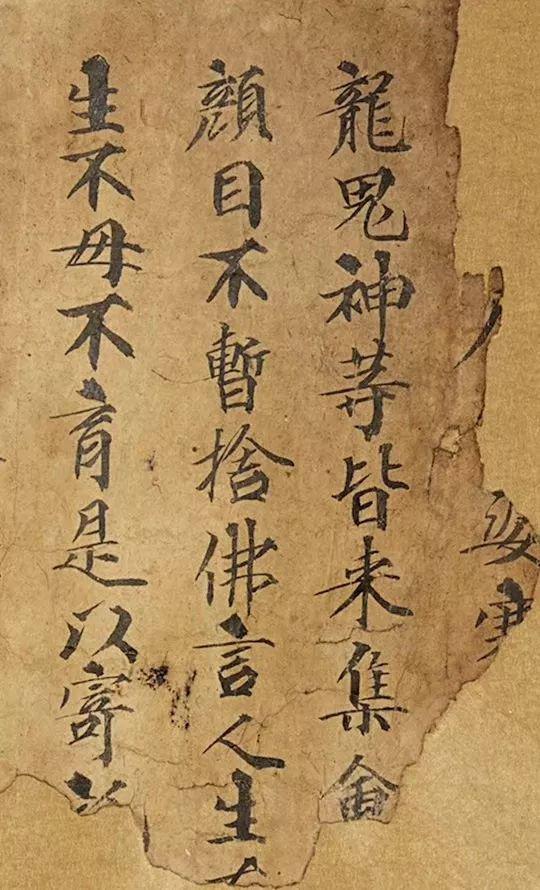 龍鬼神䓁皆来集會
顏目不暫捨佛言人生
生不毋不育是以寄